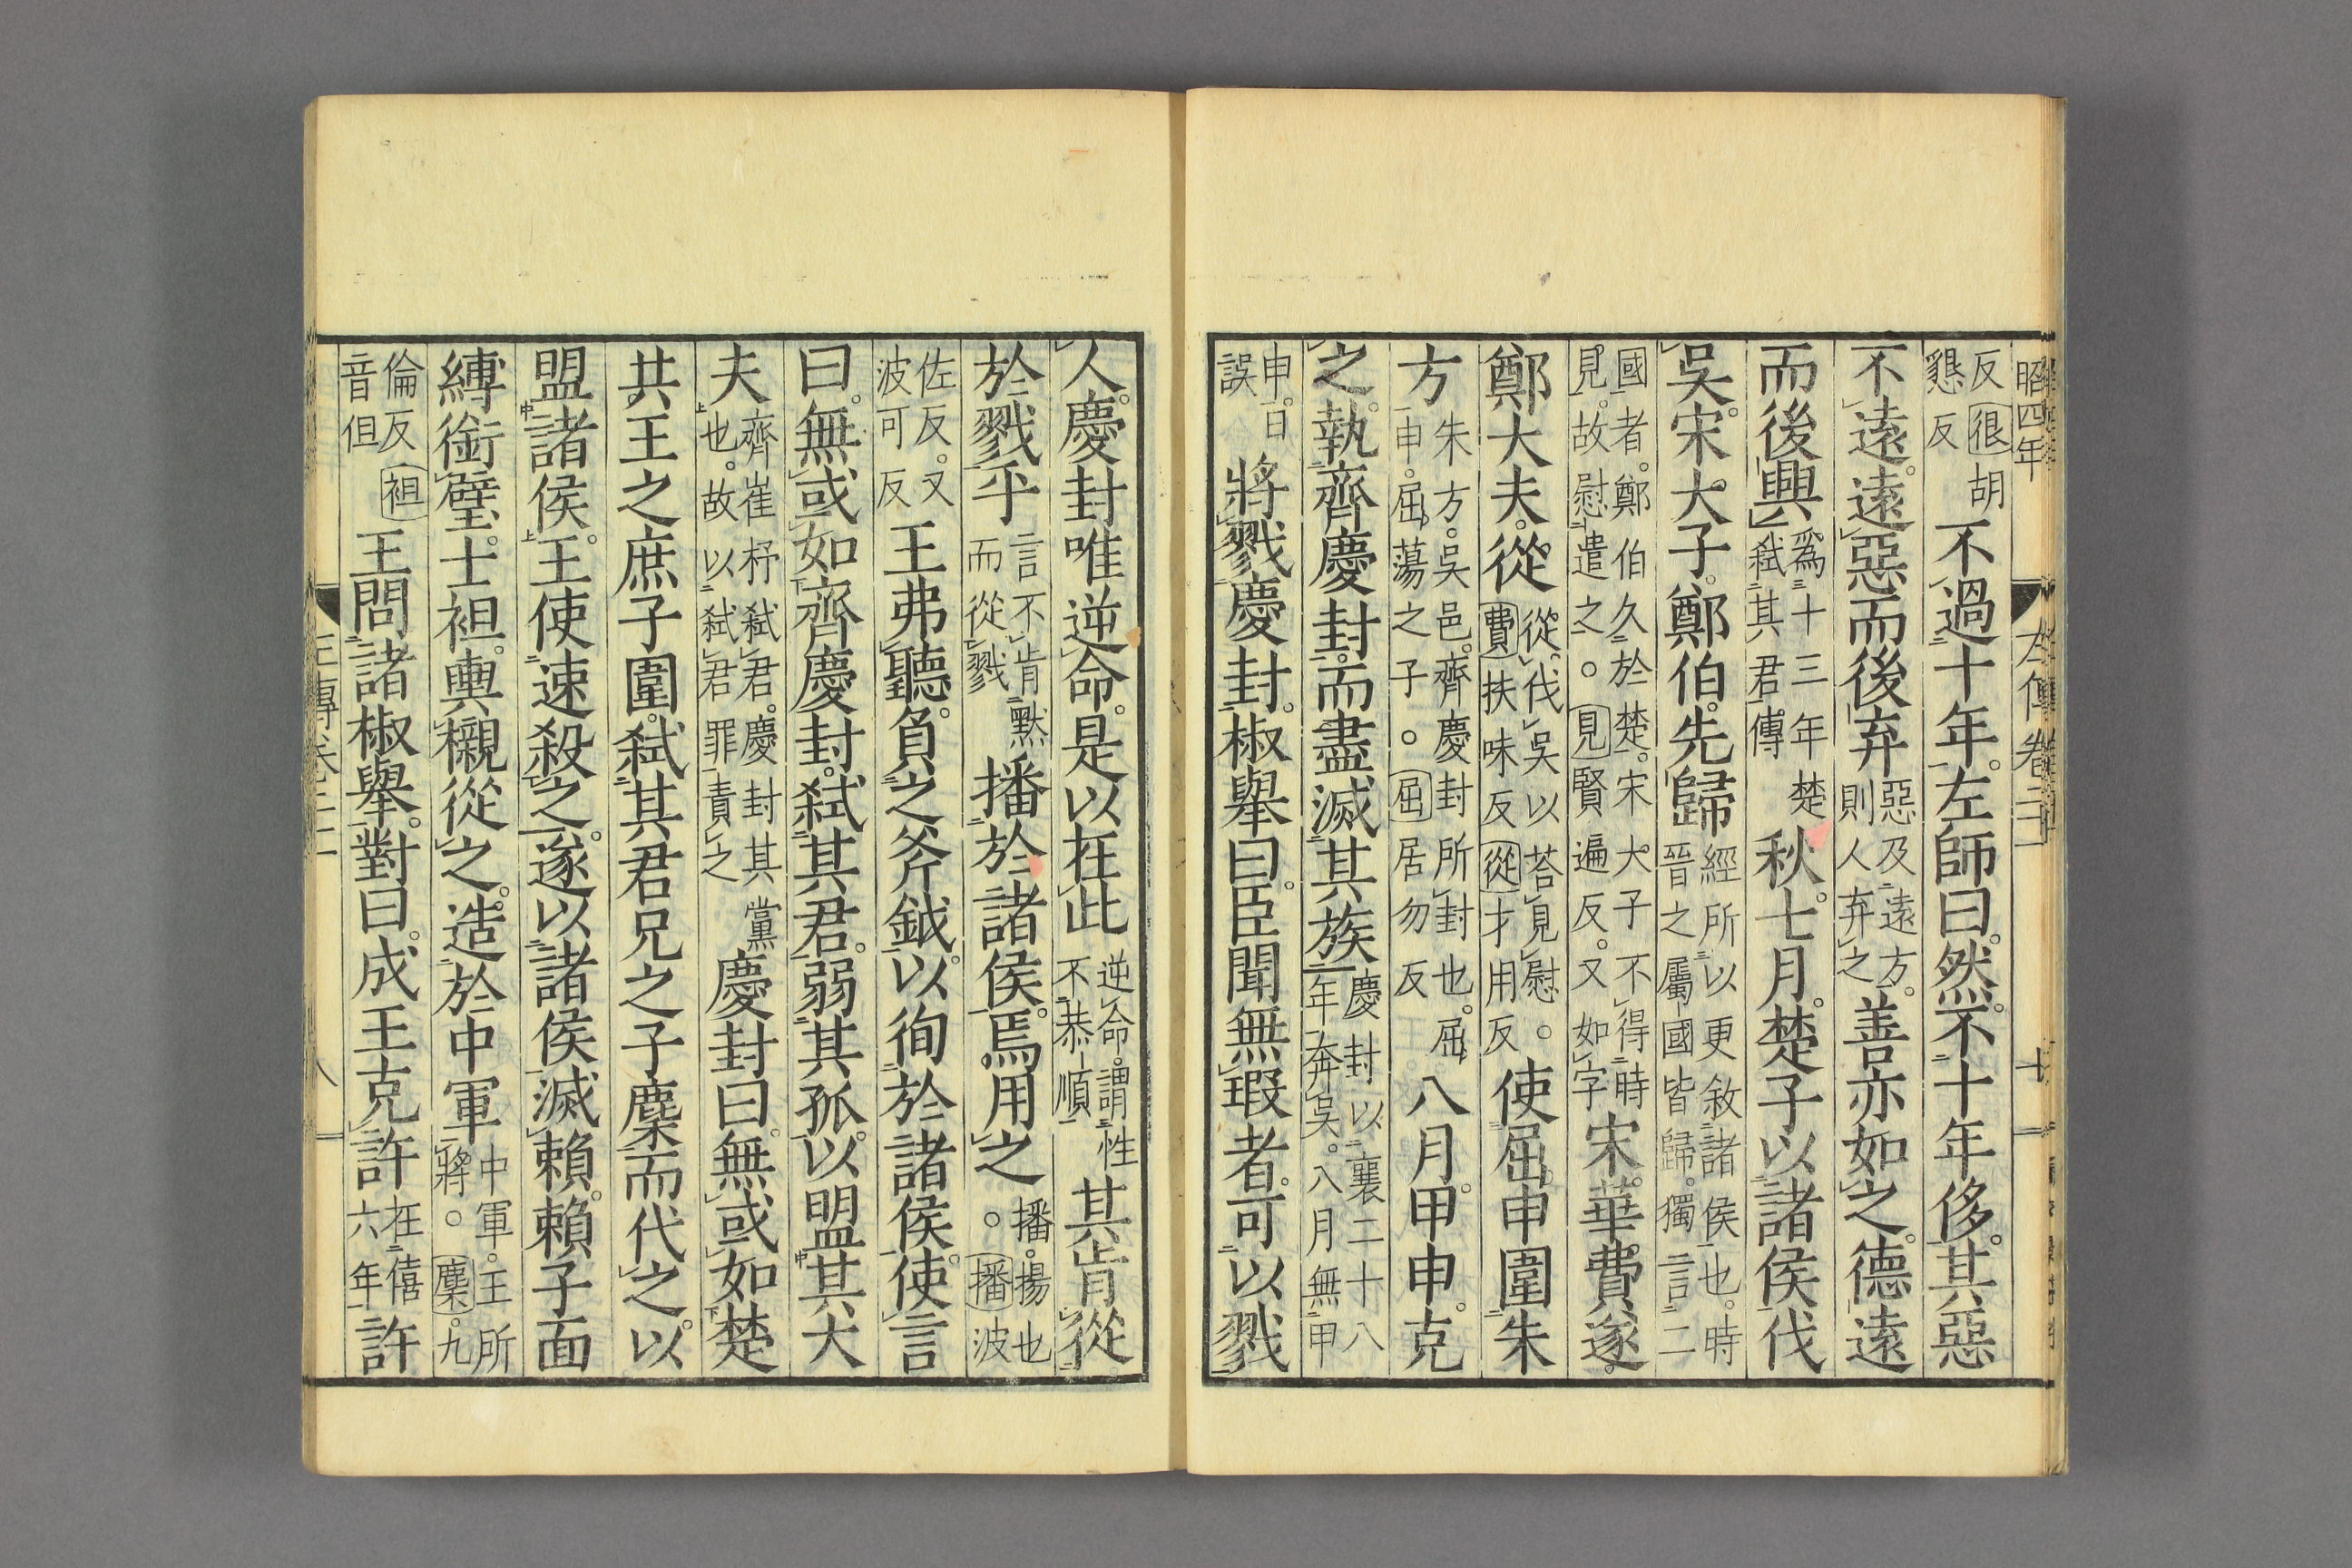 昭四年
左傳卷二十一
反(很)胡懇反不過十年左師曰然不十年侈其惡
不遠遠惡而後弃惡及遠方則人弃之善亦如之德遠
而後興爲十三年楚弑其君傳秋七月楚子以諸侯伐
吳宋大子鄭伯先歸經所以更敘諸侯也時晉之屬國皆歸獨言二
國者鄭伯久於楚宋大子不得時見故慰遣之。(見)賢遍反又如字宋華費遂
鄭大夫從從伐吳以荅見慰。(費)扶味反(從)才用反使屈申圍朱
方朱方吳邑齊慶封所封也屈申屈蕩之子。(屈)居勿反八月甲申克
之執齊慶封而盡滅其族慶封以襄二十八年奔吳。八月無甲
申日誤將戮慶封椒舉曰臣聞無瑕者可以戮
人慶封唯逆命是以在此逆命謂性不恭順其肯從
於戮乎言不肯默而從戮播於諸侯焉用之播揚也。(播)波
佐反又波可反王弗聽負之斧鉞以徇於諸侯使言
曰無或如齊慶封弑其君弱其孤以盟其大
夫齊崔杼弑君慶封其黨也故以弑君罪責之慶封曰無或如楚
共王之庶子圍弑其君兄之子麇而代之以
盟諸侯王使速殺之遂以諸侯滅賴賴子面
縛銜璧士袒輿櫬從之造於中軍中軍王所將。(麇)九
倫反(袒)音但王問諸椒舉對曰成王克許在僖六年許